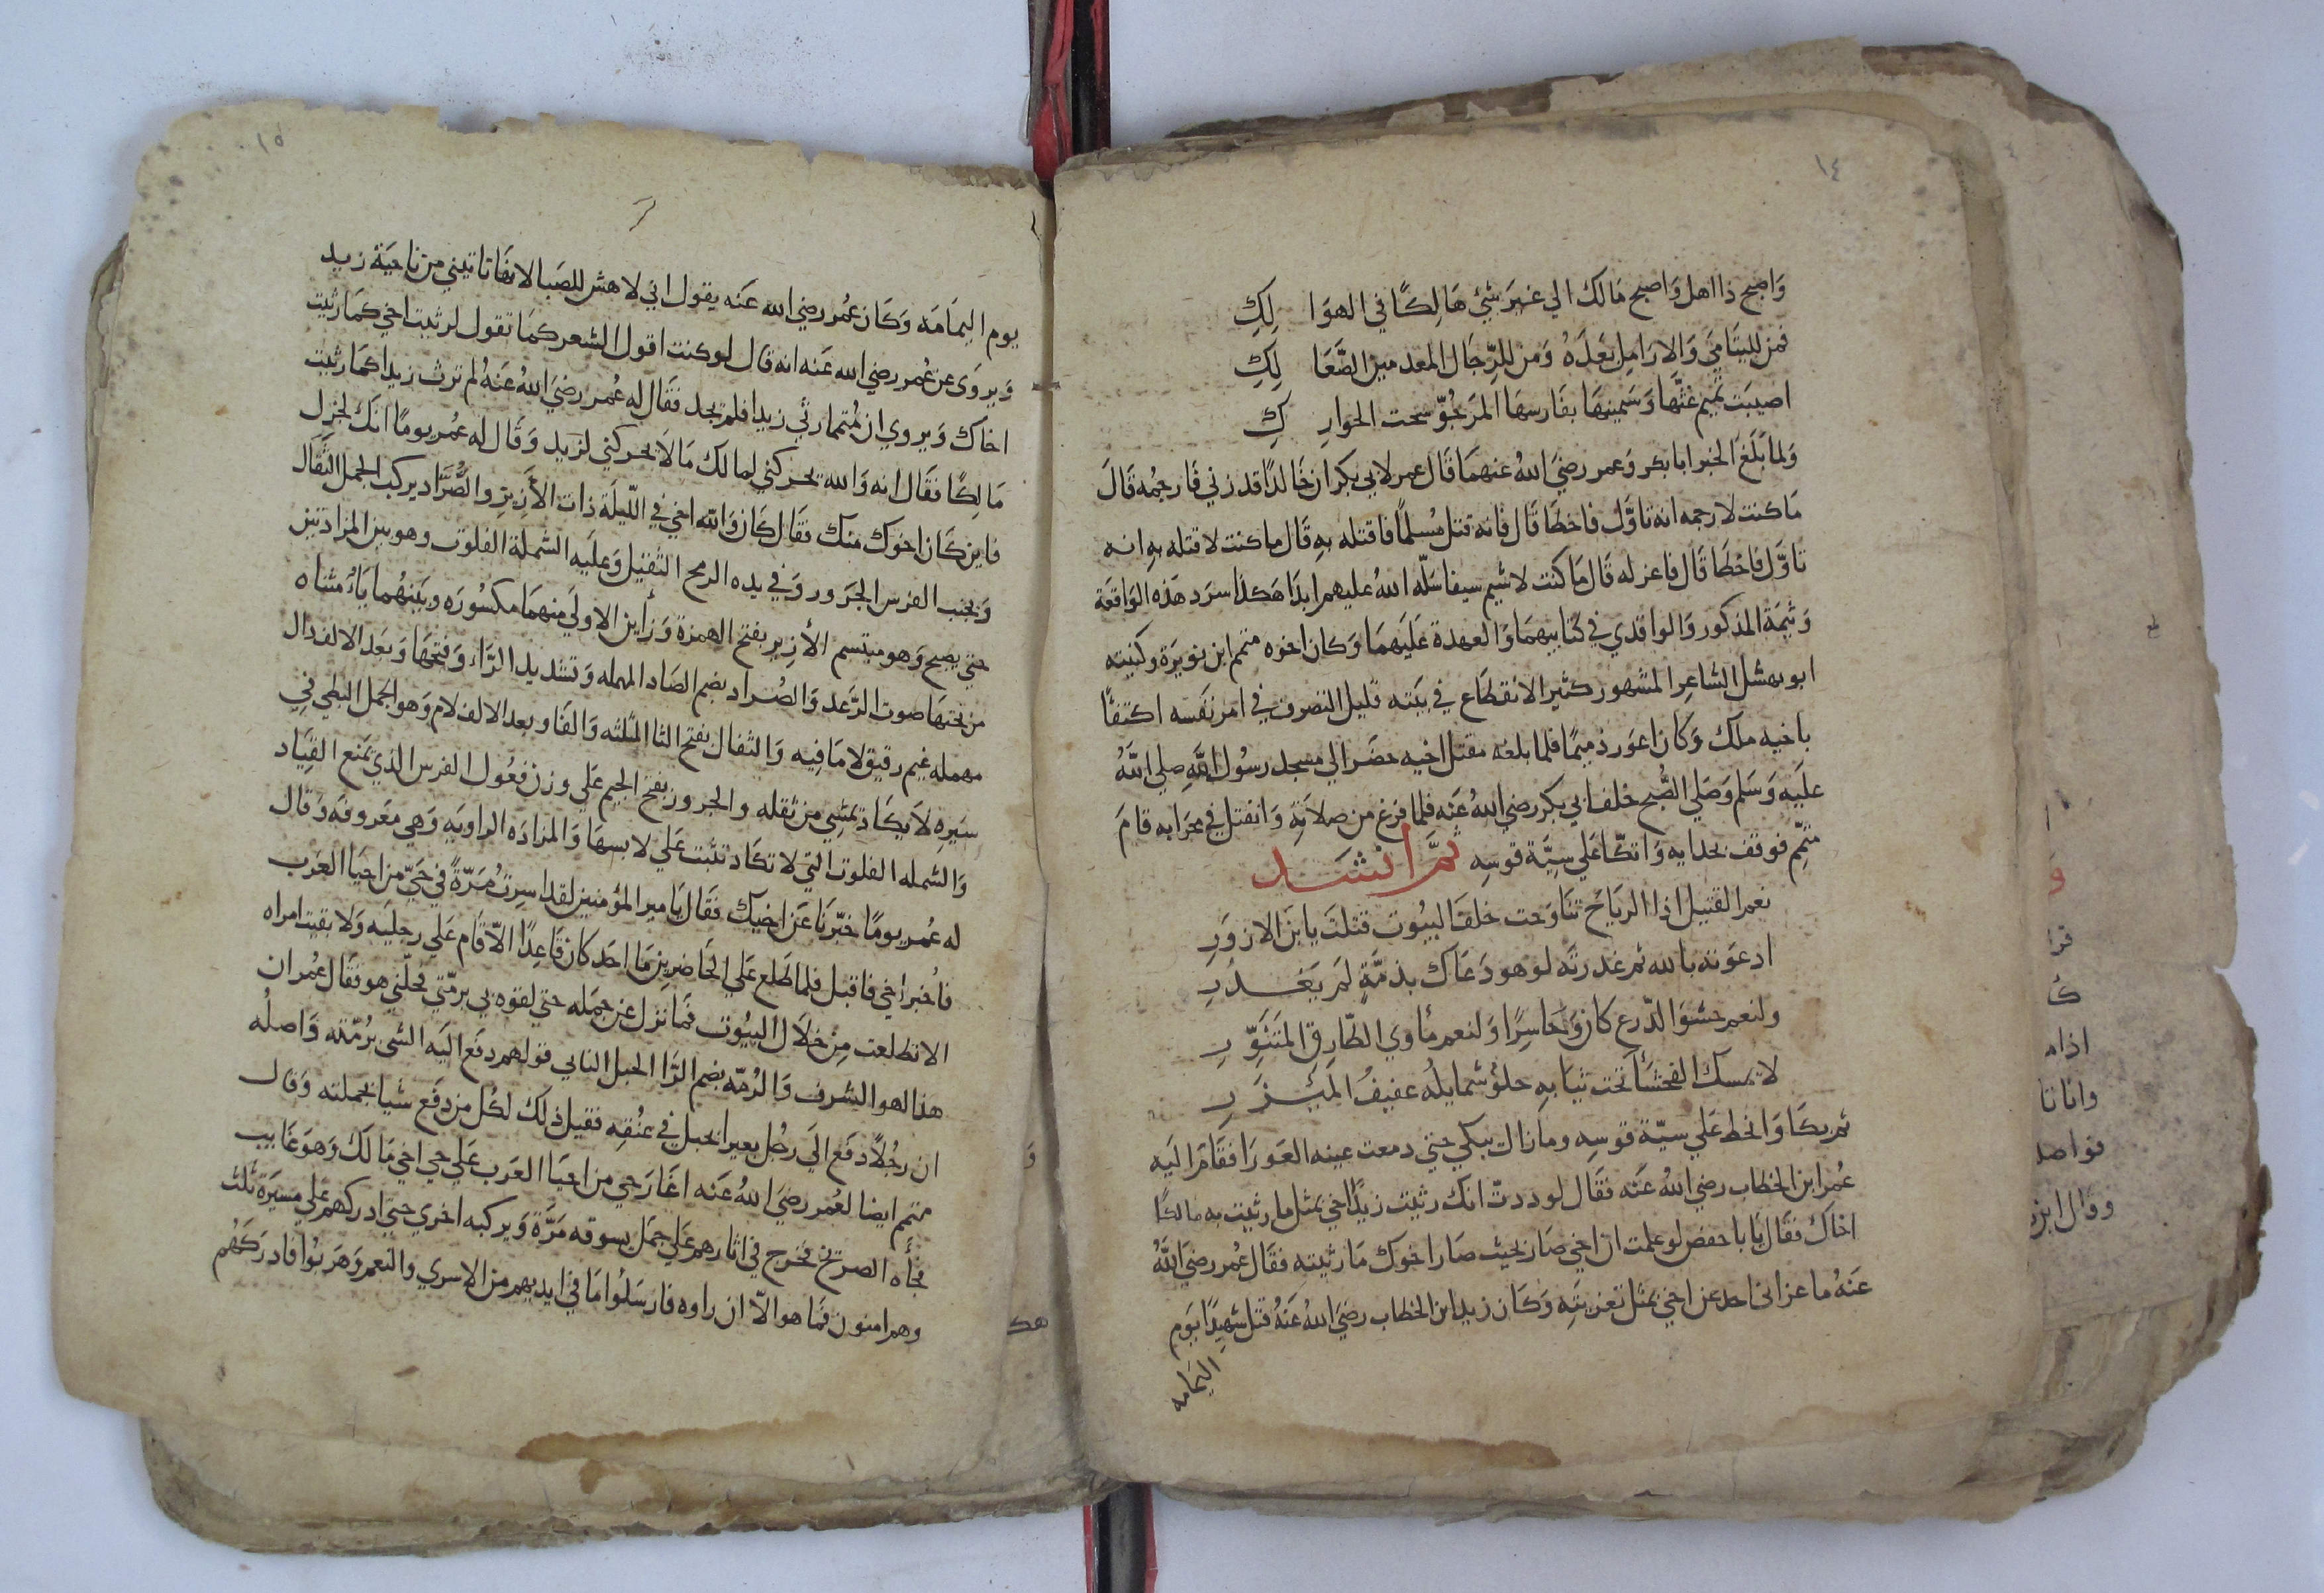 ١٤
وَاصبح ذا اهل وَاصبح مَالك الي غيرَ شئ هَالِكًا في الهوَا لِكِ
فمن لليتَامَي وَالارَامِل بَعدَهُ وَمن لِلرِّجَال المعدمين الصَّعَا لِكِ
اصيبَت تميم غثّها وَسَمينهَا بفَارسهَا المَرجُوّ تحت الحوَارِ كِ
وَلما بَلَغ الخبر ابا بكر وَعمر رضيَ اللهُ عنهمَا قَال عمر لابي بكر ان خَالدًا قد زني فَارجمُه قَالَ
مَا كنت لارجمه انه تاوَّل فاخطَا قَال فَانه قتل مُسلمًا فاقتله بهِ قَال ما كنت لاقتله بهِ انه
تاوَّل فَاخطَا قَال فاعزله قَال مَا كنت لاشيم سيفا سَلّه اللهُ عليهم ابدًا هَكذا سَرَد هَذه الوَاقعَة
وَثيمَة المذكور وَالواقدي في كتَابيهمَا وَالعهدة عَلَيهمَا وَكان اخوه متمم ابن نويرَة وكنيته
ابو نهشل الشَاعِر المشهور كثير الانقطاع في بَيته قليل التصرف في امر نَفسه اكتفَا
باخيه ملك وَكان اعوَر ذميمًا فلما بلغه مقتل اخيه حضَر الي مسجد رسُول اللَّهِ صلي اللهُ
عليَه وَسَلم وَصَلي الصُّبح خلف ابي بكر رضي اللهُ عَنه فلما فرغ من صلاتهِ وَانفتل في محرَابه قامَ
متمّم فوقف بحذايه وَاتكَّا عَلي سِيَّة قوسِه ثُمَّ انشَد
نعم القتيل اذا الريَاح تنَاوَحت خلفَ البيُوت قتلتَ يا بنَ الازوَرِ
ادعَوته بالله ثم غدرتَه لو هو دَعَاك بذمّةٍ لم يَغدُرِ
ولنعم حشوَ الدّرع كان وَحَاسِرًا وَلنعم مأوي الطّارق المتَنَوِّرِ
لا يمسك الفحشَأ تحت ثيَابهِ حلوٌ شمايلهُ عفيفُ المَيزَرِ
ثم بكَا وَانحط عَلي سيّة قوسِه وما زال يبكي حتي دمعت عينه العَورَا فقَامَ اليَه
عُمر ابن الخطاب رضي اللهُ عَنه فقَال لوددتّ انك رثيت زيدًا اخي بمثل ما رثيت به مالكًا
اخاك فقَال يَا با حفص لو علمت ان اخي صَار بحيث صَار اخوك مَا رثيته فقَال عُمر رضيَ اللَّهُ
عَنهُ ما عزاني احد عن اخي بمثل تعزيَتهِ وَكَان زيد ابن الخطاب رضيَ اللهُ عَنهُ قتل شهيدًا يَوم
اليَمامه
١٥
يوم اليمَامَه وَكَان عُمر رضي الله عَنه يقول اني لاهش للصَبا لانهَا تاتيني من ناحيَة زيد
وَيروَى عن عُمر رضي الله عَنه انه قال لو كنت اقول الشعر كمَا تقول لرثيت اخي كمَا رثيت
اخاك وَيروي ان مُتمما رثي زيدا فلم يجد فقَال له عُمر رضيَ اللهُ عَنهُ لم ترث زيدا كمَا رثيت
مَالِكًا فقَال انه وَالله يحركني لمالك مَا لَا يحركني لزَيد وَقَال له عُمر يومًا انك لجزل
فاين كَان اخوك منك فقَال كَان وَالله اخي في اللّيلَة ذات الأَزِيز والصُّرَّاد يركب الجمل الثفَال
وَيجنب الفرس الجَرَور وَفي يده الرمح الثقيل وَعليَه الشملة الفلوَت وهو بين المزادتين
حتي يصبح وَهو مبتسم الأزيز بفتح الهمزة وَزاين الاولي منهمَا مكسُورَه وَبينهُما يَاءٌ مثناه
من تحتهَا صوت الرّعد وَالصُراد بضم الصَاد المهمله وَتشديد الرَّاء وَفتحهَا وَبَعد الالف دال
مهمله غيم رقيق لا مَا فِيه وَالثفال بفتح الثا المثلثه وَالفَا وبعد الالف لام وَهو الجمل البطي في
سَيرهِ لَا يكَاد يمشي من ثقله وَالجرور بفتح الجيم عَلي وزن فعُول الفرس الذي يمنع القيَاد
وَالشمله الفلوت التي لا تكَاد تثبت عَلي لابسهَا وَالمزادَه الراويَه وَهي مَعروفه وَقَال
له عُمر يومًا خبّرنَا عَن اخيك فقَال يَا مير المؤمنين لقد اسِرتُ مَرّةً في حَيّ من احيَا العَرب
فاُخبر اخي فاقبل فلما طَلع عَلي الحَاضرين مَا احَد كان قَاعِدًا الاّ قَام عَلي رجليَه وَلا بقيت امراه
الا تطلعت مِن خلَال البيُوت فمَا نزل عن جمَله حتي لقوه بي برمّتي فحلّني هو فقَال عُمر ان
هذا لهو الشرف وَالرُمّه بضم الرّا الحبل البالي قولهم دفَع اليَه الشي بُرمّته وَاصلُه
ان رجُلًا دفَع الَي رجُل بعيرا بحبل في عنُقِه فقيل ذلك لكُل من دفَع شيا بجملته وَقال
متمم ايضا لعُمر رضيَ اللهُ عَنه اغَار حي من احيَا العَرب عَلي حي اخي مَالك وَهوَ غَايب
فجأه الصرَيخ فخرج في اثارهم عَلي جمَل يسوقه مَرَّة وَيركبه اخري حتي ادركهم عَلي مسيرَة ثلث
وهم امنون فمَا هو الاّ ان راوه فارسَلوُا مَا في ايديهم من الاسري والنعم وَهَربُوا فادرَكَهُم